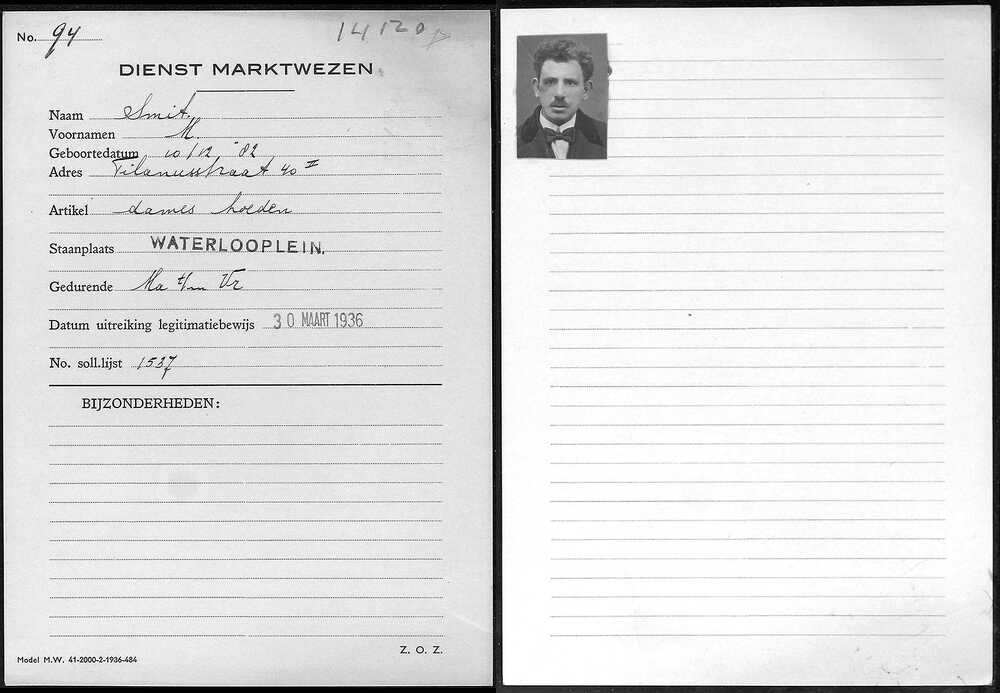 No. 94
DIENST MARKTWEZEN
Naam Smit.
Voornamen M.
Geboortedatum 10/12 '82
Adres Tilanusstraat 40 II
Artikel dames hoeden
Staanplaats WATERLOOPLEIN.
Gedurende Ma t/m Vr
Datum uitreiking legitimatiebewijs 30 MAART 1936
No. soll.lijst 1537
BIJZONDERHEDEN:
Z. O. Z.
Model M.W. 41-2000-2-1936-484